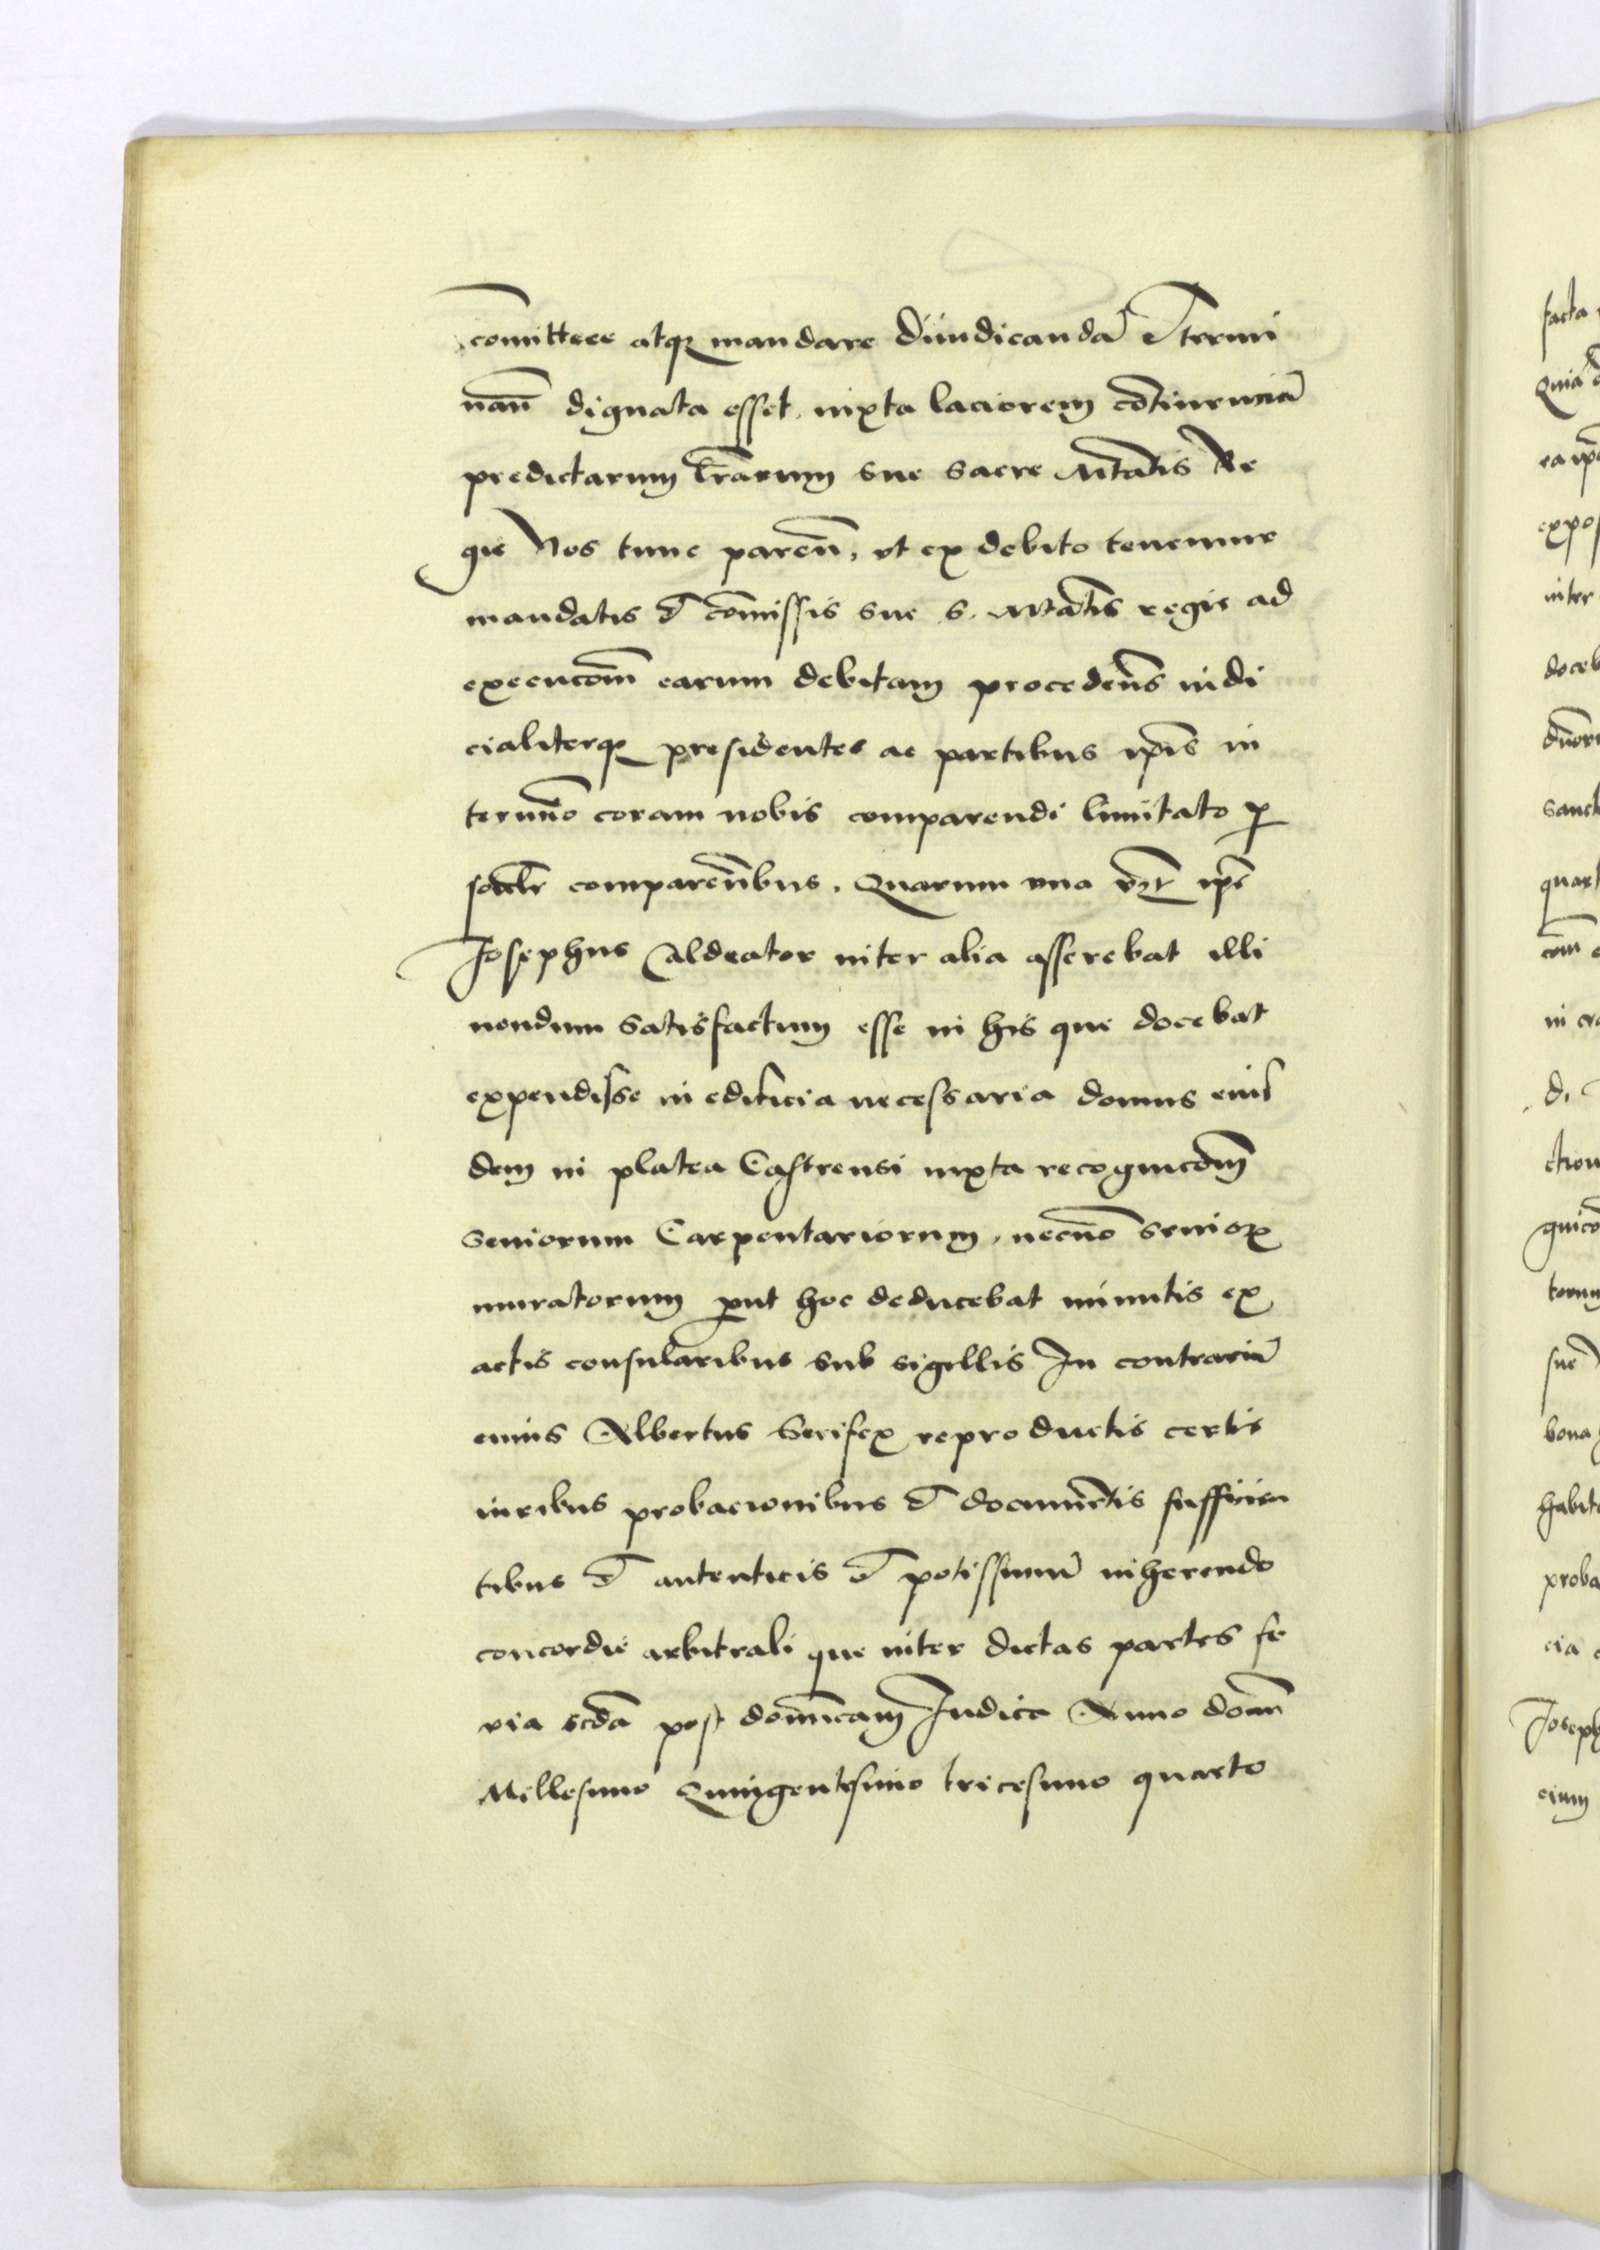 comittere atq mandare Diiudicandā et termi
nan̄ dignata esset. iuxta laciorem cōtinenciā
predictarum lrārum sue sacre Mtatis Re
gie Nos tunc paren̄. vt ex debito tenemur
mandatis et cōmissis sue s. Mtatis regie ad
execucom̄ earum debitam proceden̄s iudi
cialiterq presidentes ac partibus ipīs in
termīo coram nobis comparendi limitato p
sonalr comparen̄bus. Quarum vna vz ipē
Josephus Caldeator inter alia asserebat illi
nondum satisfactum esse in his que docebat
expendisse in edificia necessaria domus eius
dem in platea Castrensi iuxta recognicōm̄
seniorum Carpentariorum. necnō senior
muratorum put hoc deducebat minutis ex
actis consularibus sub sigillis In contrariū
cuius Albertus Serifex reproductis certis
iuribus probacionibus et documētis sufficien
tibus et autenticis et potissimū inherendo
concordie arbitrali que inter dictas partes fe
ria scdā post dominicam Judica Anno dom̄
Millesimo Quingentesimo tricesimo quarto
facta
Quia
ea ipā
expos
inter
doceb
dnōr
sanct
quart
com̄
in
d.
ction
gnico
torum
sue
bona
habit
proba
cia
Joseph
cium